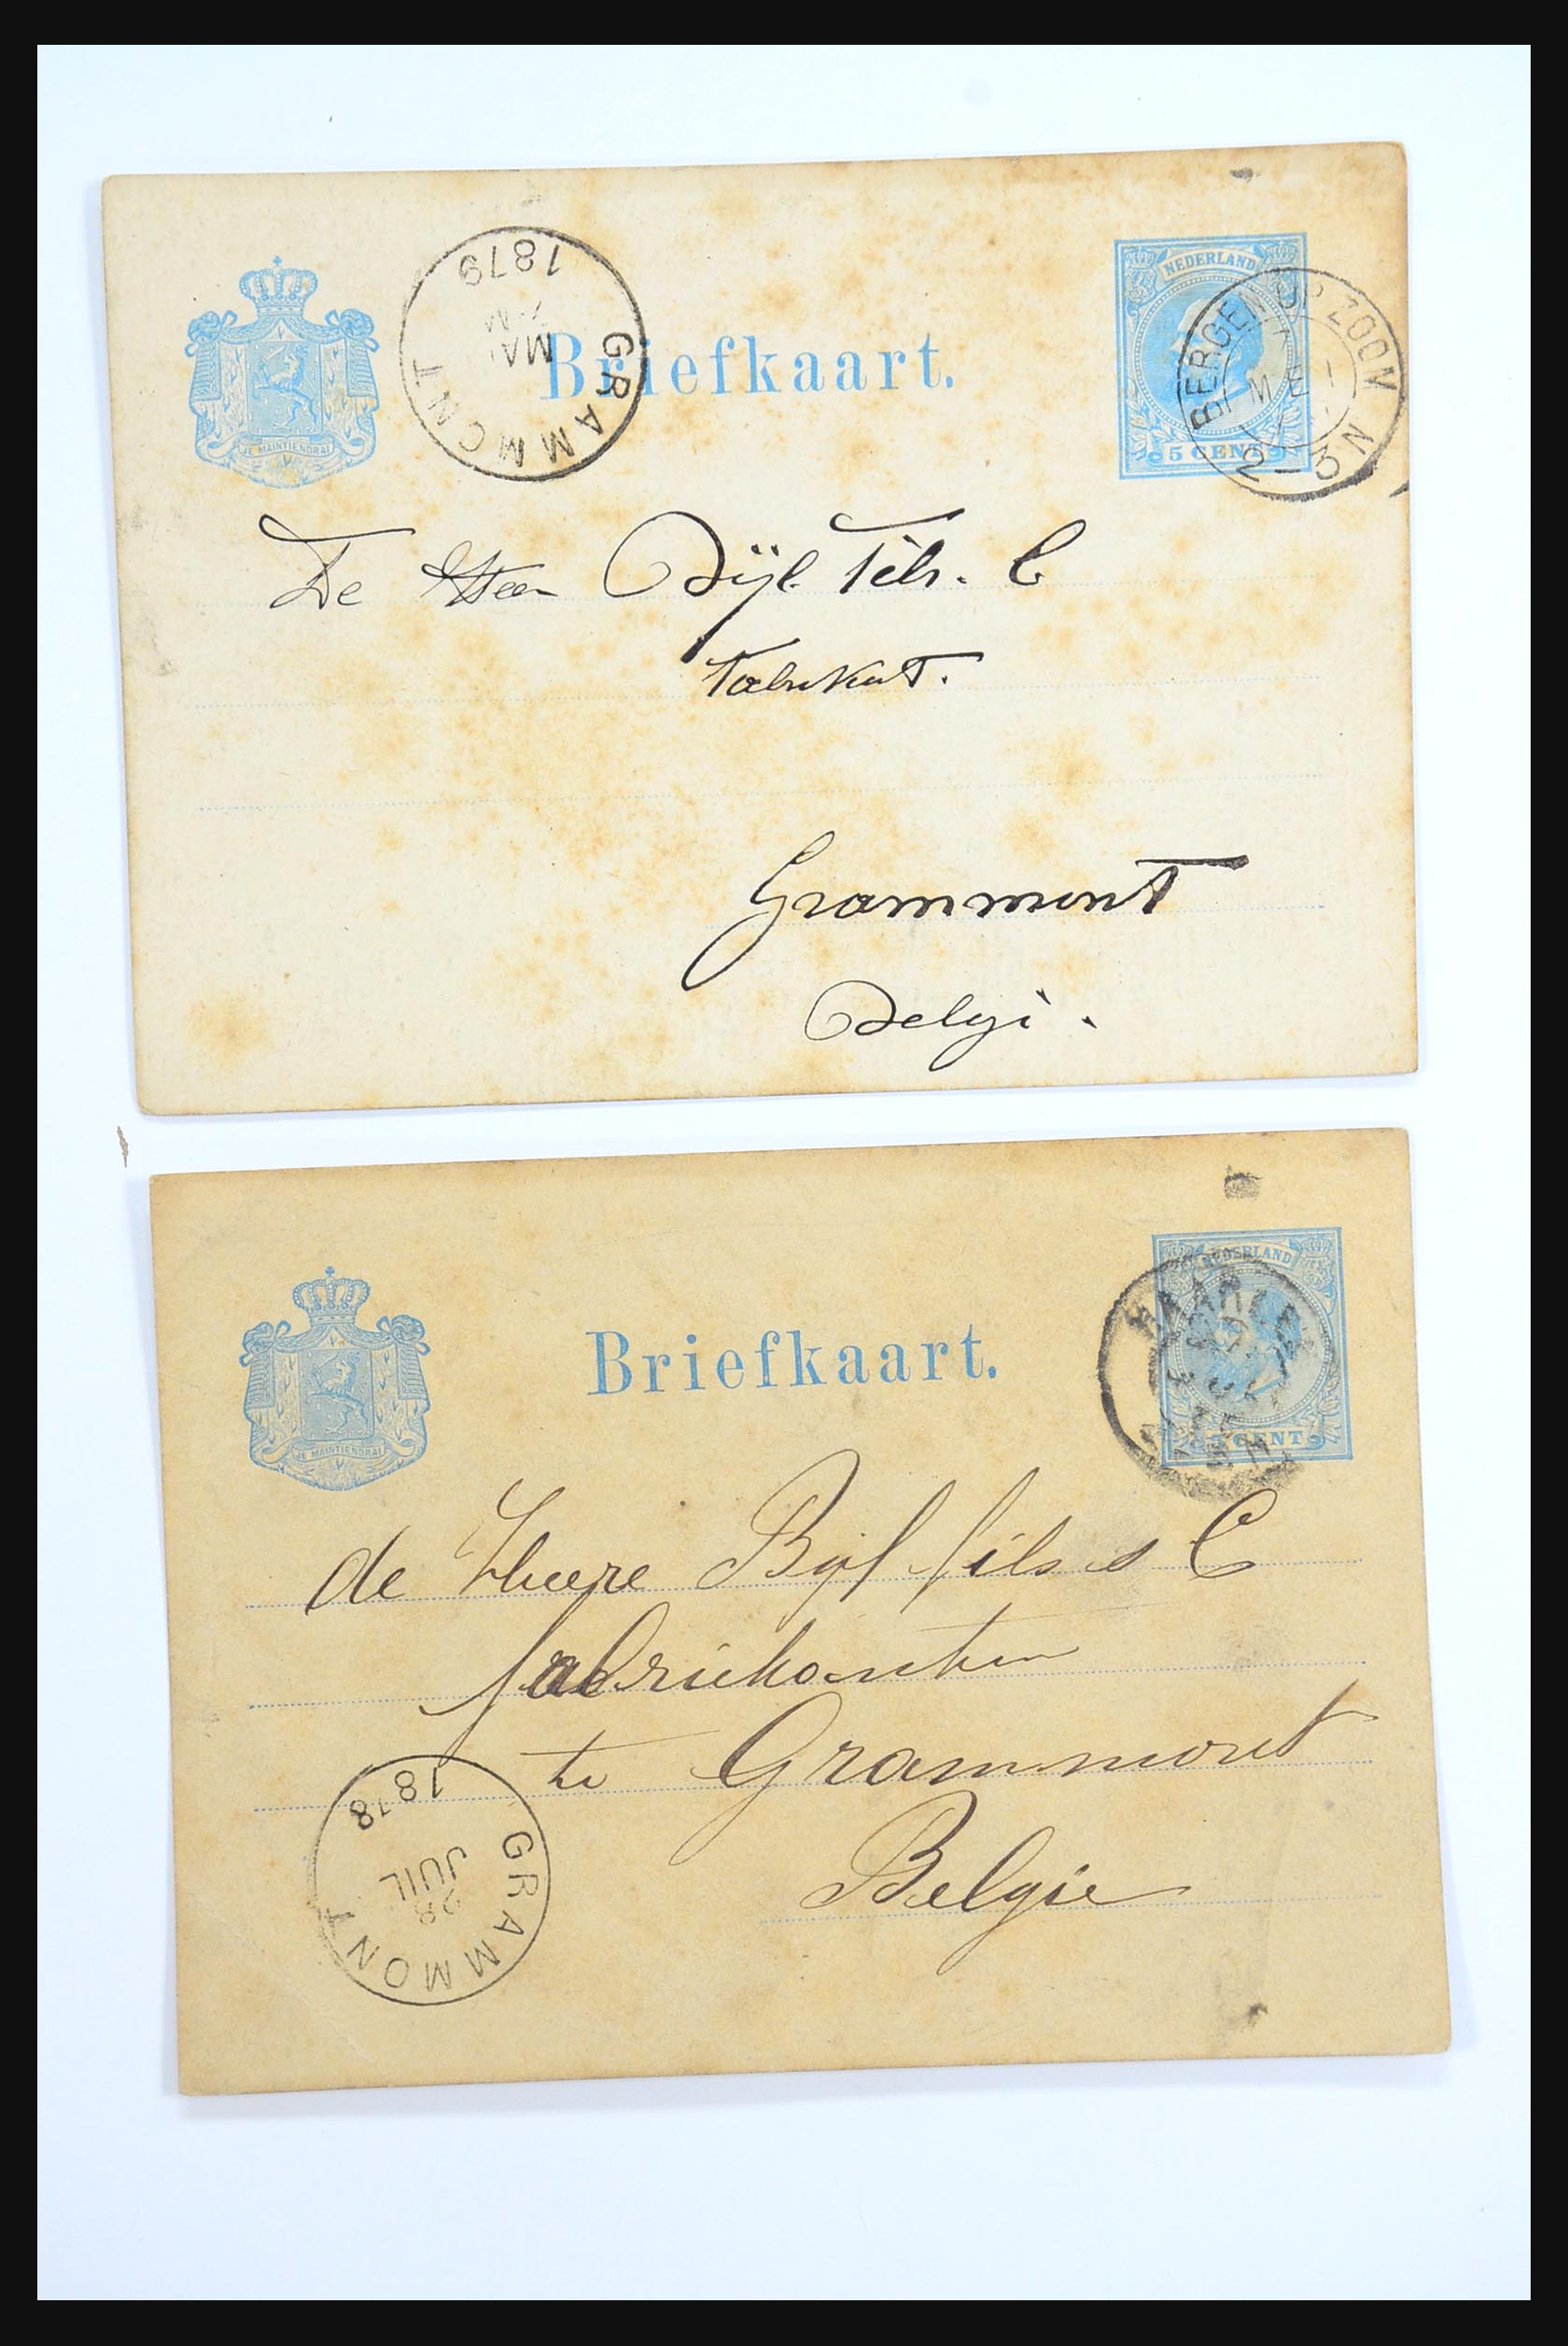 1879
MAI
GRAMMONT
Briefkaart.
NEDERLAND
5 CENT
BERGEN OP ZOOM
2-3 N
JE MAINTIENDRAI
De Heer Bijl Fils. C
Fabrikant.
Grammont
Belgi.
Briefkaart.
NEDERLAND
5 CENT
HAARLEM
JE MAINTIENDRAI
de Heere Byl fils & C
fabriekanten
te Grammont
Belgie
1878
28
JUIL
GRAMMONT